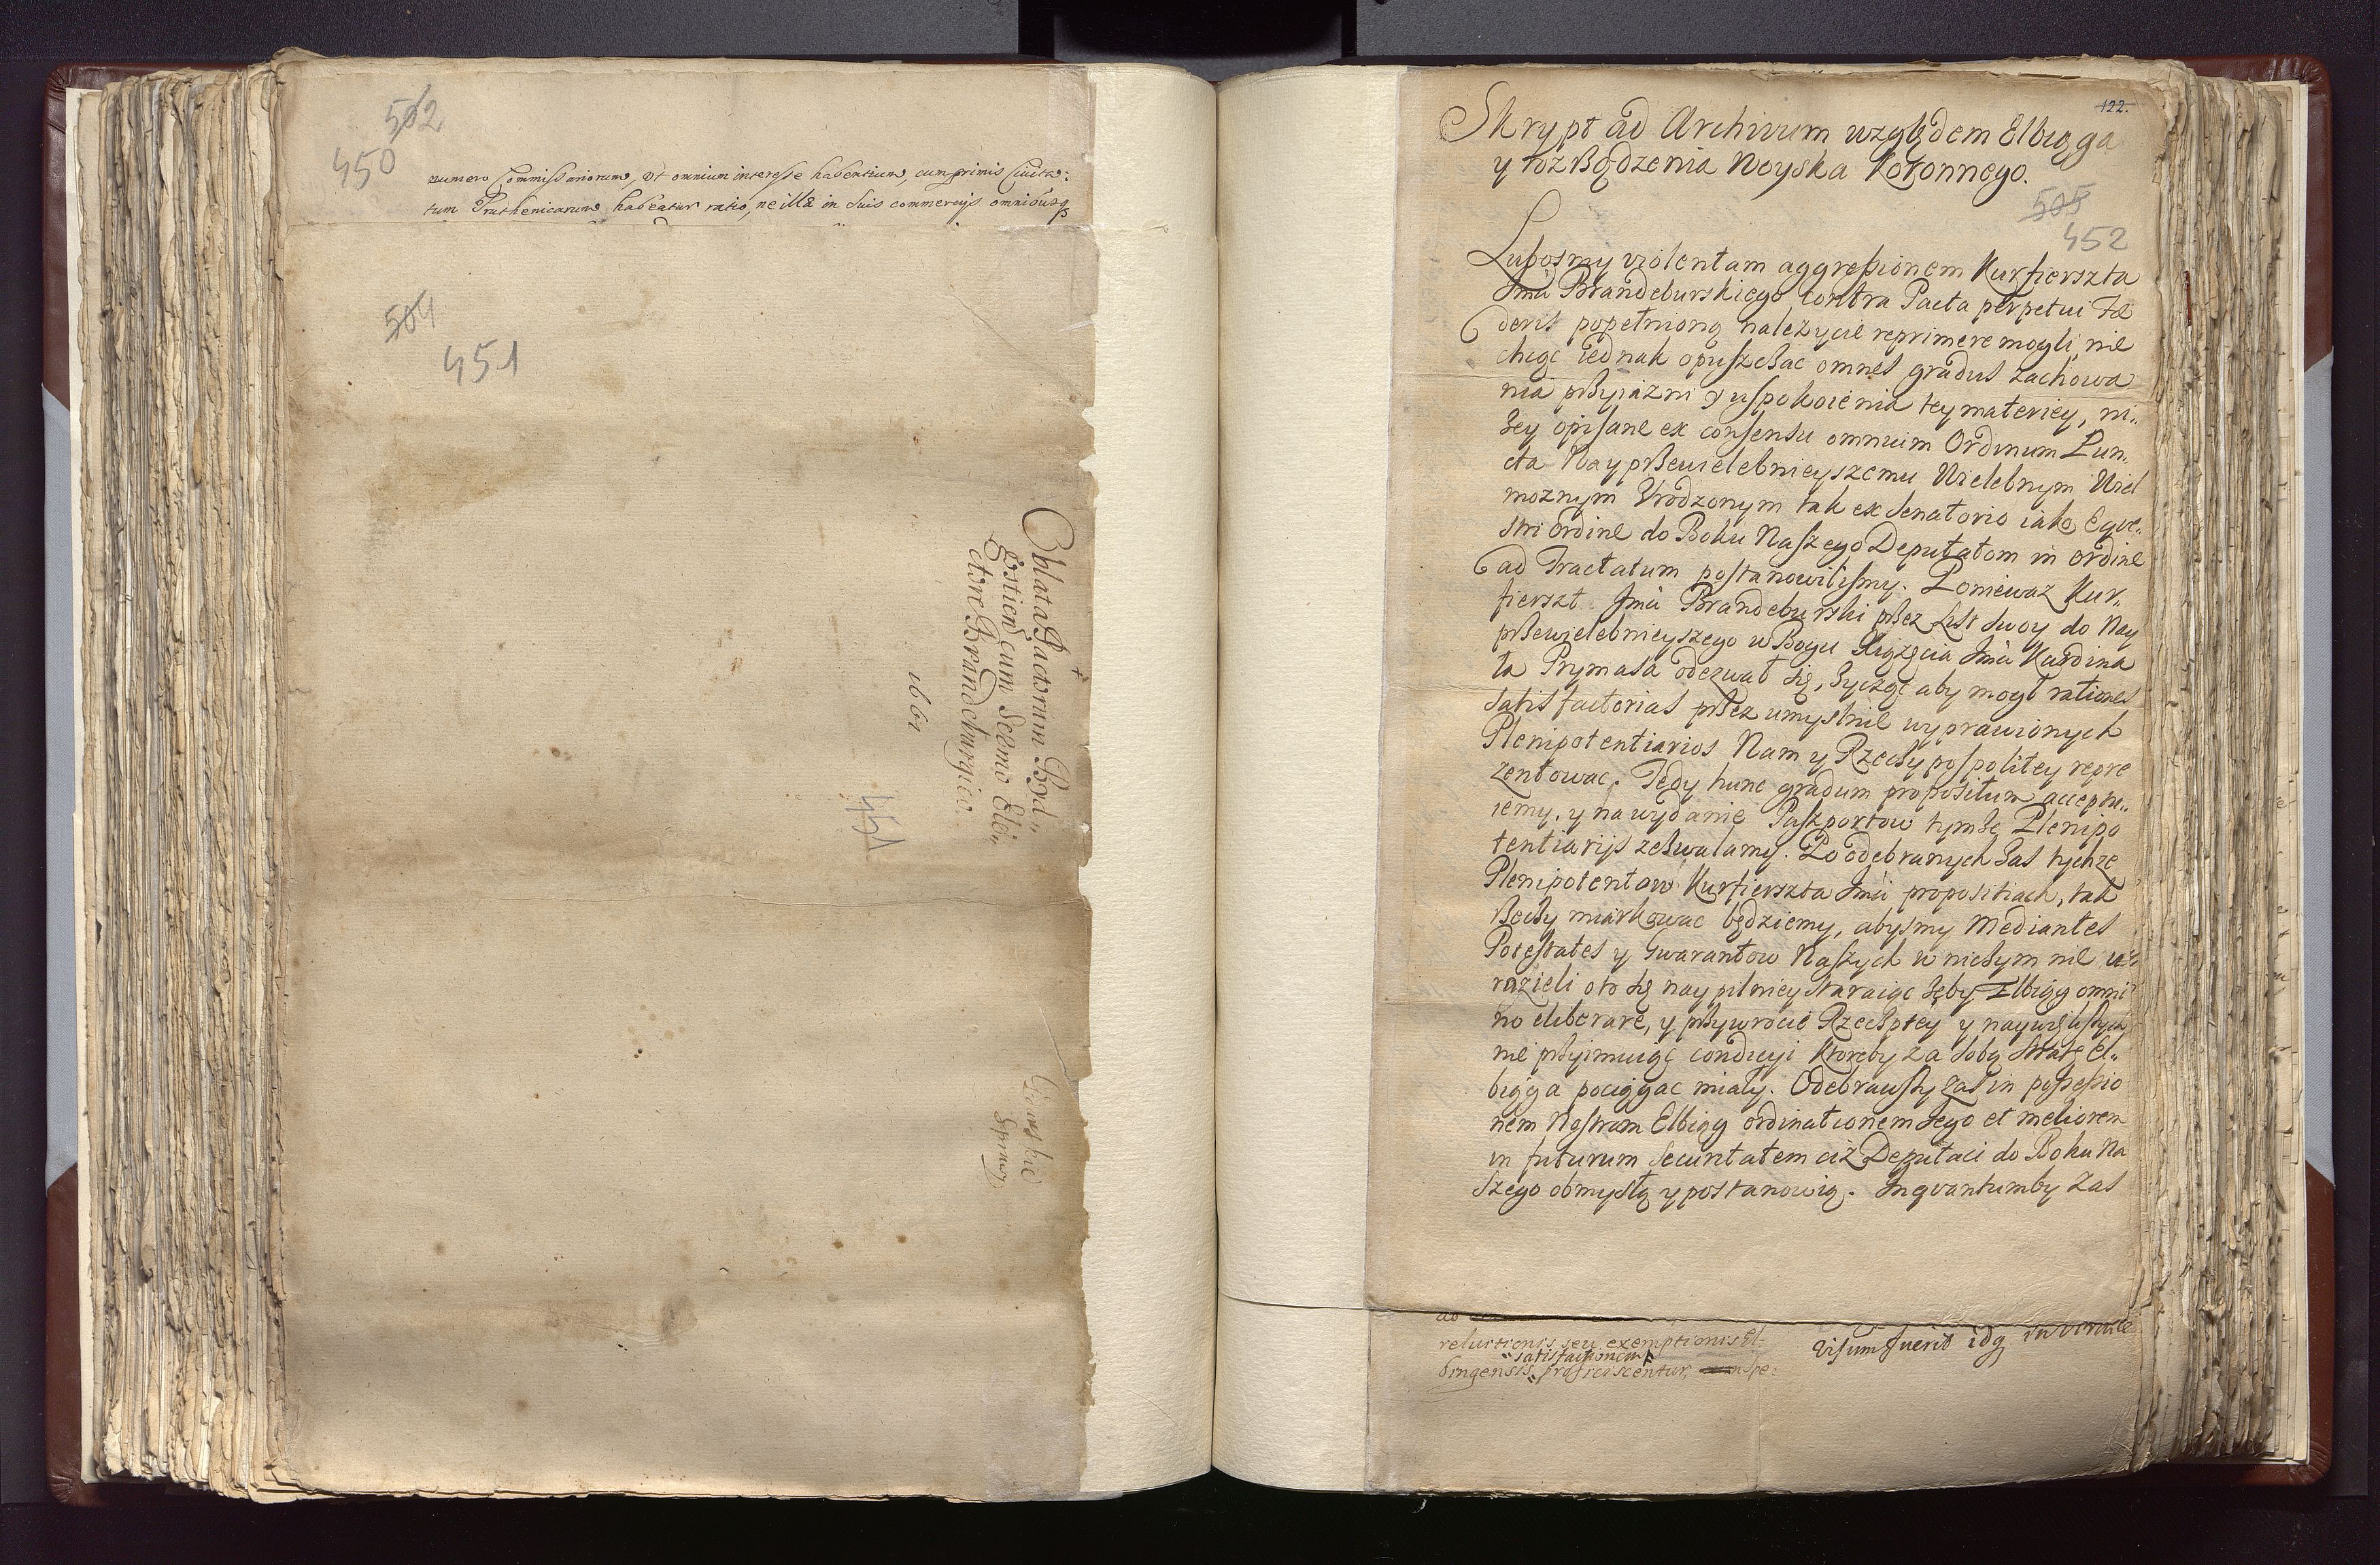 502
450
numero Commissariorum, ut omnium interesse habentium, cum primis Civita:
tum Pruthenicarum habeatur ratio, ne illæ in suis commercijs omnibusq
504
451
Oblata Pactorum Byd„
gostien cum Sermo Ele„
ctore Brandeburgico.
1661
451
Spraw
122.
Skrypt ad Archivum względem Elbiąga
y rozrządzenia Woyska Koronnego.
505
452
Lubosmy violentam aggressionem Kurfierszta
Jmci Brandeburskiego contra Pacta perpetui Fæ
deris popełnioną należycie reprimere mogli, nie
chcąc iednak opuszczac omnes gradus zachowa
nia przyiazni y uspokoienia tey materiey, ni„
zey opisane ex consensu omnium Ordinum Pun„
cta Nayprzewielebnieyszemu Wielebnym Wiel
moznym Urodzonym tak ex Senatorio iako Eqve„
stri ordine do Boku Naszego Deputatom in ordine
ad Tractatum postanowilismy. Poniewaz Kur„
fierszt Jmci Brandeburski przez List swoy do Nay
przewielebnieyszego w Bogu Xiążęcia Jmci Kardina
ła Prymasa odezwał się, zycząc aby mogł rationes
satisfactorias przez umyslnie wyprawionych
Plenipotentiarios Nam y Rzeczypospolitey repre
zentowac. Tedy hunc gradum propositum acceptu„
iemy, y na wydanie Paszportow tymze Plenipo
tentiarijs zezwalamy. Po odebranych zas tychze
Plenipotentow Kurfierszta Jmci propositiach, tak
rzeczy miarkowac będziemy, abysmy Mediantes
Potestates y Gwarantow Naszych w niczym nie u
razieli oto się naypilniey staraiąc zeby Elbiąg omni
no eliberare, y przywrocic Rzeczptey y
nie przyimuiąc condicyi ktoreby za sobą stratę El„
biąga pociągac miały. Odebrawszy zas in possessio
nem Nostram Elbiąg ordinationem Jego et meliorem
in futurum Securitatem ciż Deputaci do Boku Na
szego obmyslą y postanowią. Inqvantumby zas
reluitionis seu exemptionis El-
satisfactionem
bingensis proficiscentur,
visum fuerit idq